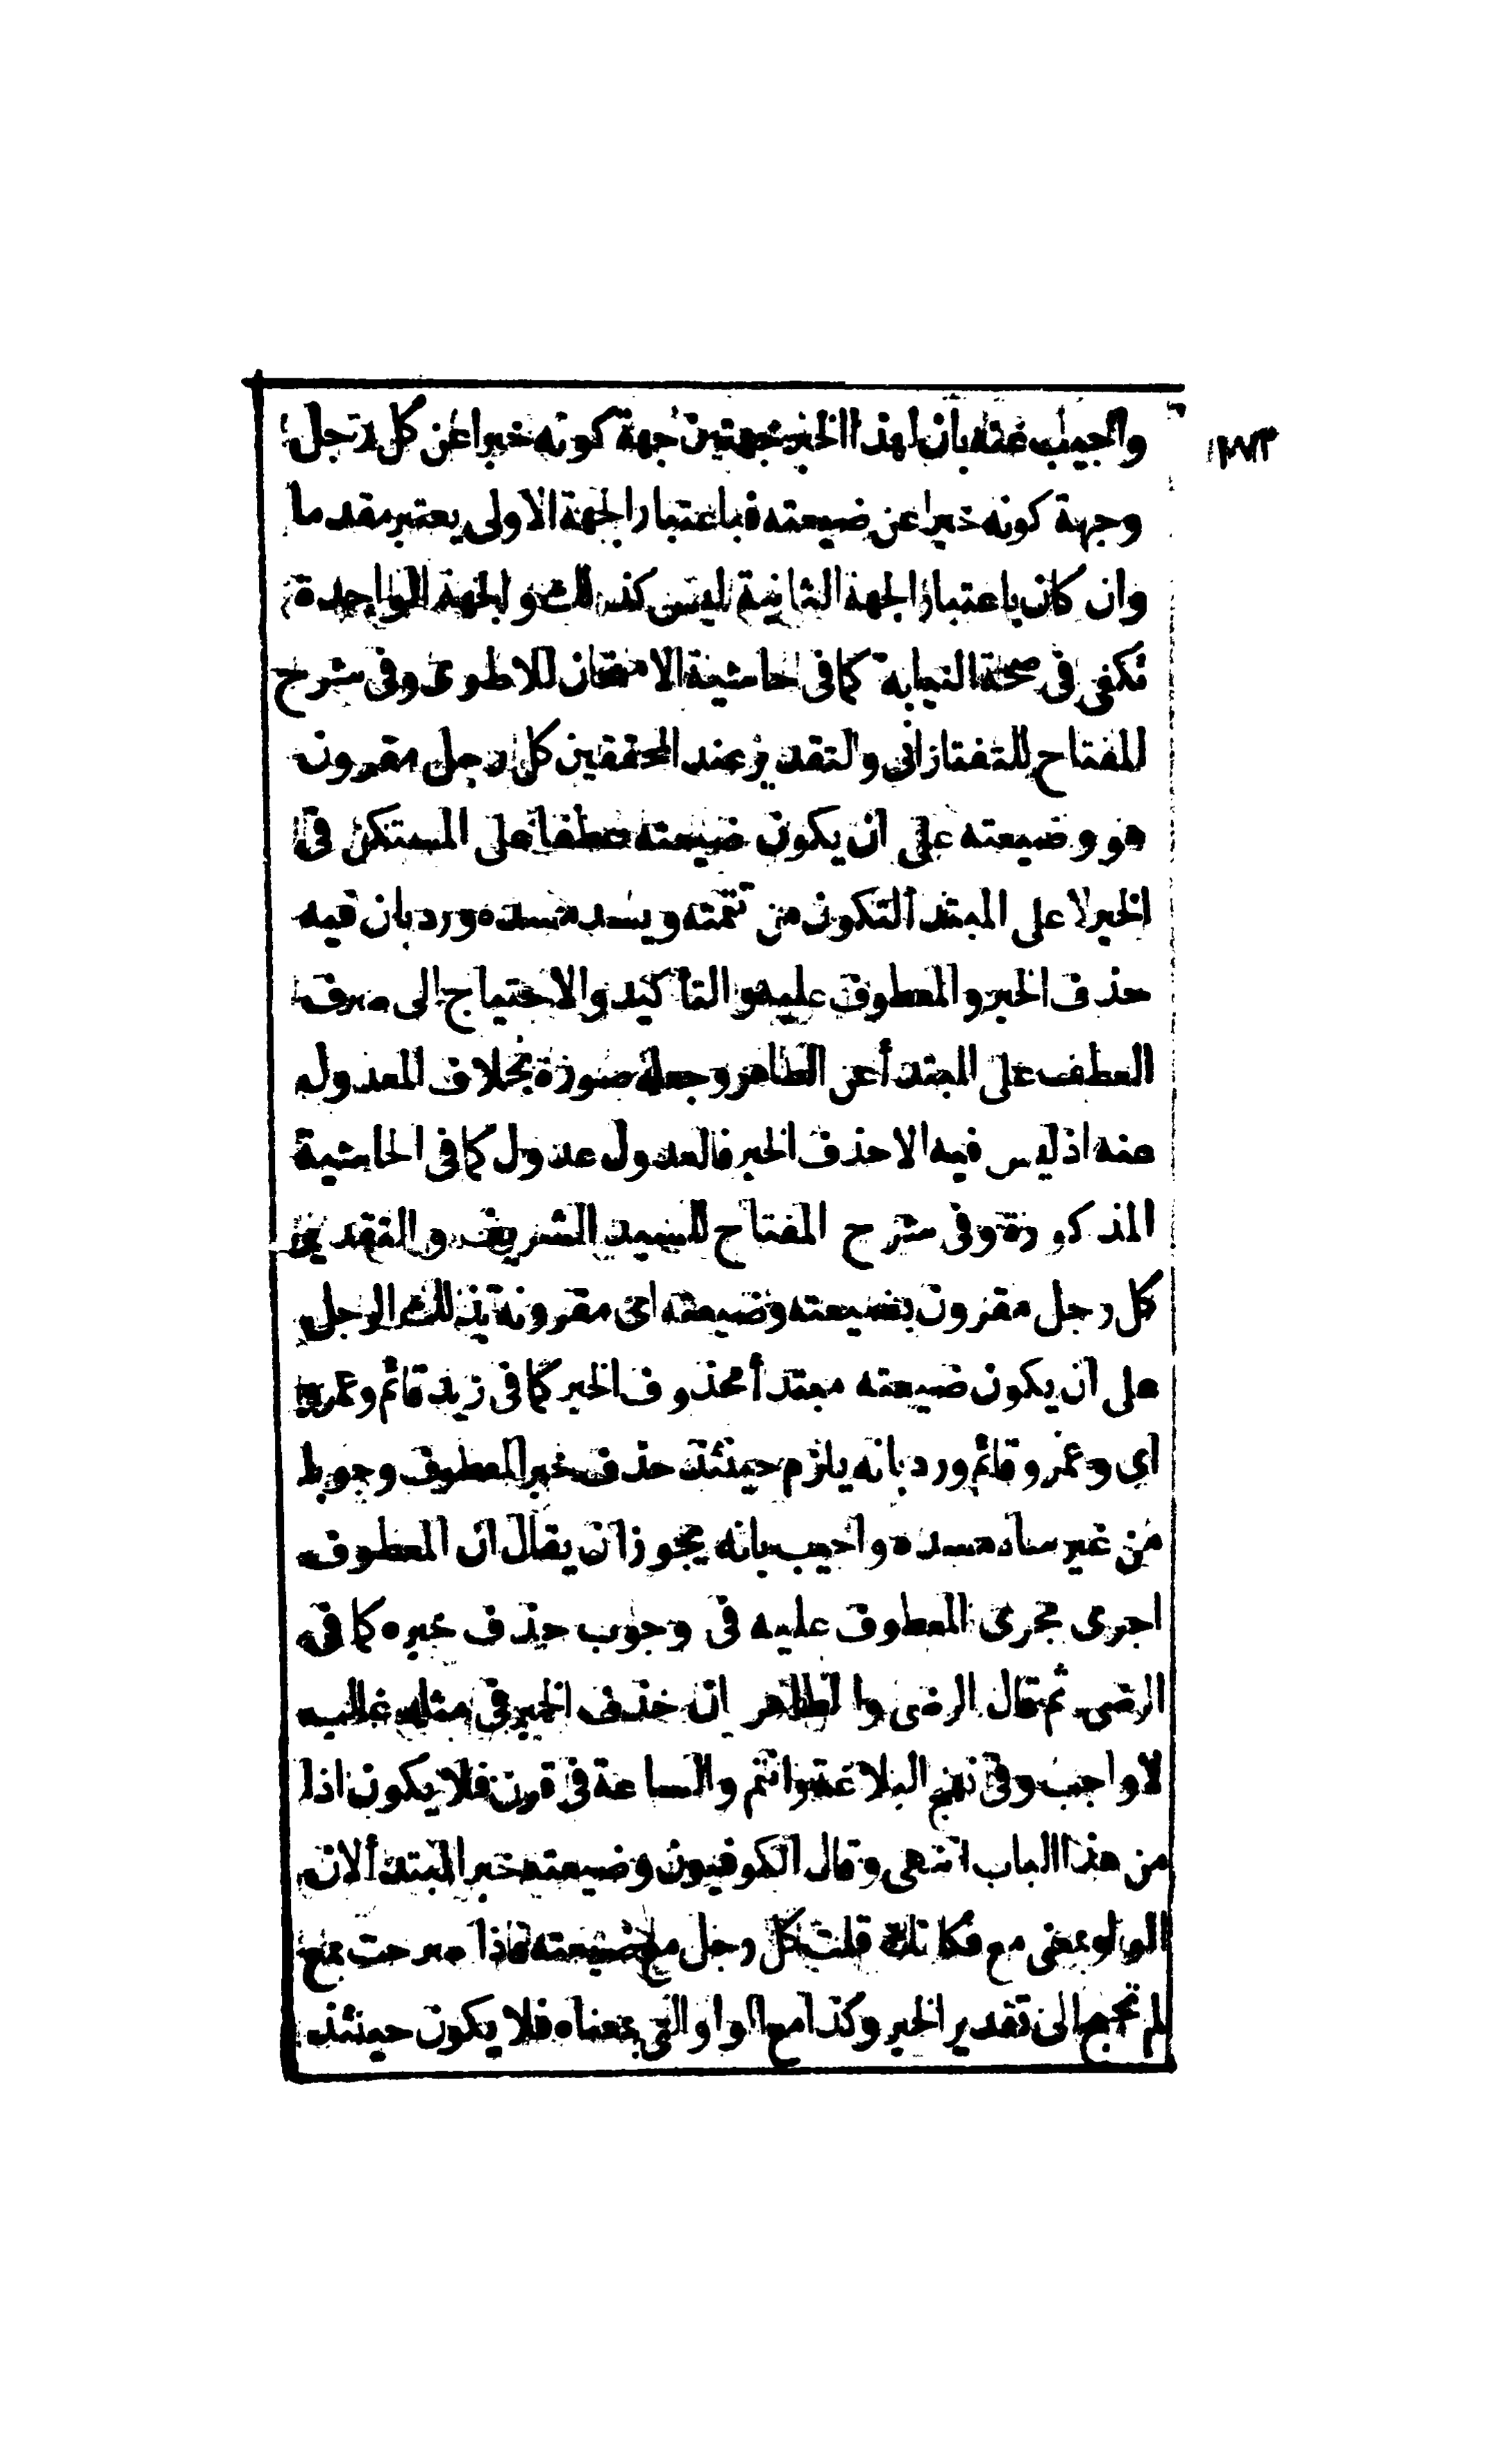 واجيب عنه بان لهذا الخبر جهتين جهة كونه خبرا عن كل رجل
وجهة كونه خبرا عن ضيعته فباعتبار الجهة الاولى يعتبر مقدما
وان كان باعتبار الجهة الثانية ليس كذلك والجهة الواحدة
تكفى فى صحة النيابة كما فى حاشية الامتحان للاطوى وفى شرح
المفتاح للتفتازانى والتقدير عند المحققين كل رجل مقرون
هو وضيعته على ان يكون ضيعته عطفا على المستكن فى
الخبر لا على المبتدأ لتكون من تتمته ويسد مسده ورد بان فيه
حذف الخبر والمعطوف عليه والتأكيد والاحتياج الى صرف
العطف على المبتدأ عن الظاهر وجعله صورة بخلاف المعدول
عنه اذ ليس فيه الا حذف الخبر فالعدول عدول كما فى الحاشية
المذكورة وفى شرح المفتاح للسيد الشريف والتقدير
كل رجل مقرون بضيعته وضيعته اى مقرونة بذلك الرجل
على ان يكون ضيعته مبتدأ محذوف الخبر كما فى زيد قائم وعمرو
اى وعمرو قائم ورد بانه يلزم حينئذ حذف خبر المعطوف وجوبا
من غير ساد مسده واجيب بانه يجوز ان يقال ان المعطوف
اجرى مجرى المعطوف عليه فى وجوب حذف خبره كما فى
الرضى ثم قال الرضى والظاهر ان حذف الخبر فى مثله غالب
لا واجب وفى نهج البلاغة وانتم والساعة فى قرن فلا يكون اذا
من هذا الباب انتهى وقال الكوفيون وضيعته خبر المبتدأ لان
الواو بمعنى مع فكانك قلت كل رجل مع ضيعته فاذا صرحت بمع
لم تحتج الى تقدير الخبر وكذا مع الواو التى بمعناه فلا يكون حينئذ